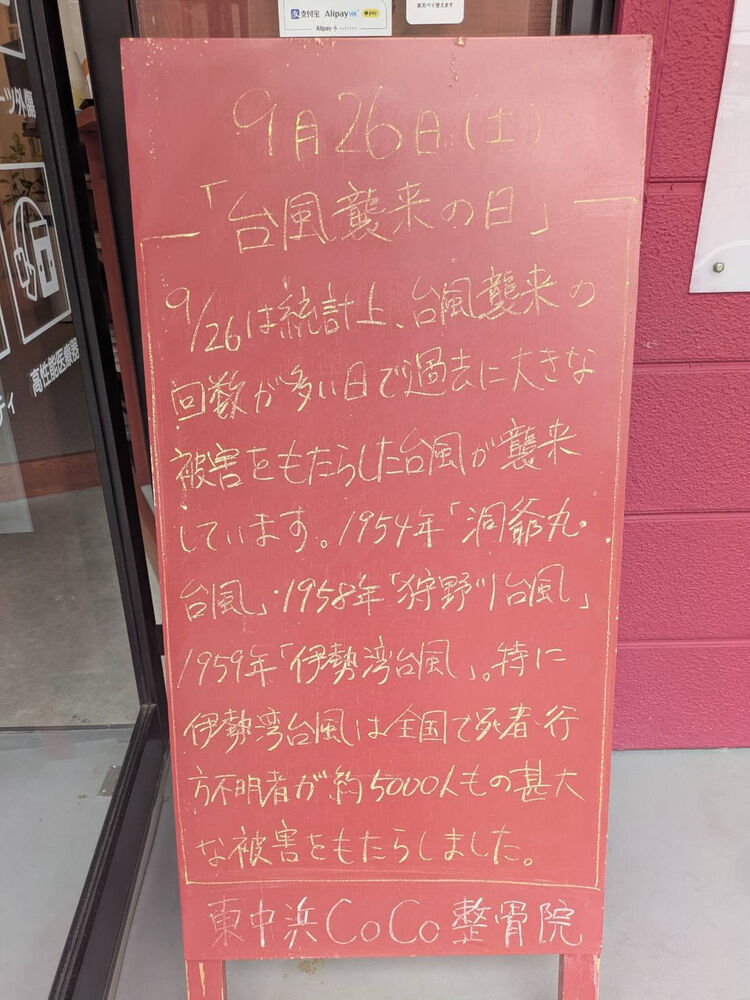 支付宝 Alipay HK pay
Alipay+
楽天ペイ使えます
ーツ外傷
高性能医療器
ティ
9月26日(土)
「台風襲来の日」
9/26は統計上、台風襲来の
回数が多い日で過去に大きな
被害をもたらした台風が襲来
しています。1954年「洞爺丸
台風」・1958年「狩野川台風」
1959年「伊勢湾台風」。特に
伊勢湾台風は全国で死者・行
方不明者が約5000人もの甚大
な被害をもたらしました。
東中浜CoCo整骨院